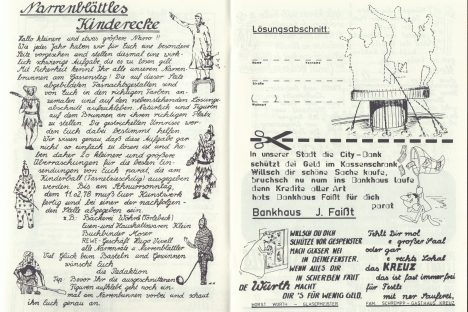 Narrenblättles
Kinderecke
Hallo kleinere und etwas größere Narro!!
Wie jedes Jahr haben wir für Euch eine besondere
Seite vorgesehen und stellen diesmal eine wirk-
lich schwierige Aufgabe die es zu lösen gilt.
Mit Sicherheit kennt Ihr alle unseren Narren-
brunnen am Gansensteg! Die auf dieser Seite
abgebildeten Fasnachtsgestalten sind
von Euch in den richtigen Farben an-
zumalen und auf den nebenstehenden Lösungs-
abschnitt aufzukleben. Natürlich sind Figuren
auf dem Brunnen an ihren richtigen Platz
zu stellen. Die gestrichelten Linien wer-
den Euch dabei bestimmt helfen.
Wir wissen genau daß diese Aufgabe gar
nicht so einfach zu lösen ist und ha-
ben daher 20 kleinere und größere
Überraschungen für die besten Ein-
sendungen von Euch parat, die am
Kinderball ausgegeben
werden. Bis am Schmorsonntag,
dem 11.02.78 muß Euer Kunstwerk
fertig und bei einer der nachfolgen-
den Stelle abgegeben sein.
z.B: Bäckerei
Eisen- und Haushaltswaren Klein
Buchbinder Moser
REWE-Geschäft Hugo
alle Narrenräte u. Narrenblättler
Viel Glück beim Basteln und Gewinnen
wünscht Euch
die Redaktion
Tip: Bevor Ihr die ausgeschnittenen
Figuren aufklebt geht noch ein-
mal am Narrenbrunnen vorbei und schaut
ihn Euch genau an.
Lösungsabschnitt:
Name Vorname
Straße
Wohnort
In unserer Stadt die City-Bank
schützt Dei Geld im Kassenschrank.
Willsch dir schöne Sache kaufe,
bruchsch nu num ins Bankhaus laufe
denn Kredite aller Art
hots Bankhaus Faißt für dich
parat
Bankhaus J. Faißt
WILLSCH DU DICH
SCHÜTZE VOR GESPENSTER
MACH GLÄSER NEI
IN DEINE FENSTER.
WENN ALLES DIR
IN SCHERBEN FÄHLT
DE Würth MACHT
DIR 'S FÜR WENIG GELD.
HORST WÜRTH - GLASERMEISTER
Fehlt Dir mol
e großer Saal
oder gar
e rechts Lokal
das KREUZ
das ist fast immer frei
für Feste
mit ner Sauferei.
FAM. SCHREMPP - GASTHAUS KREUZ